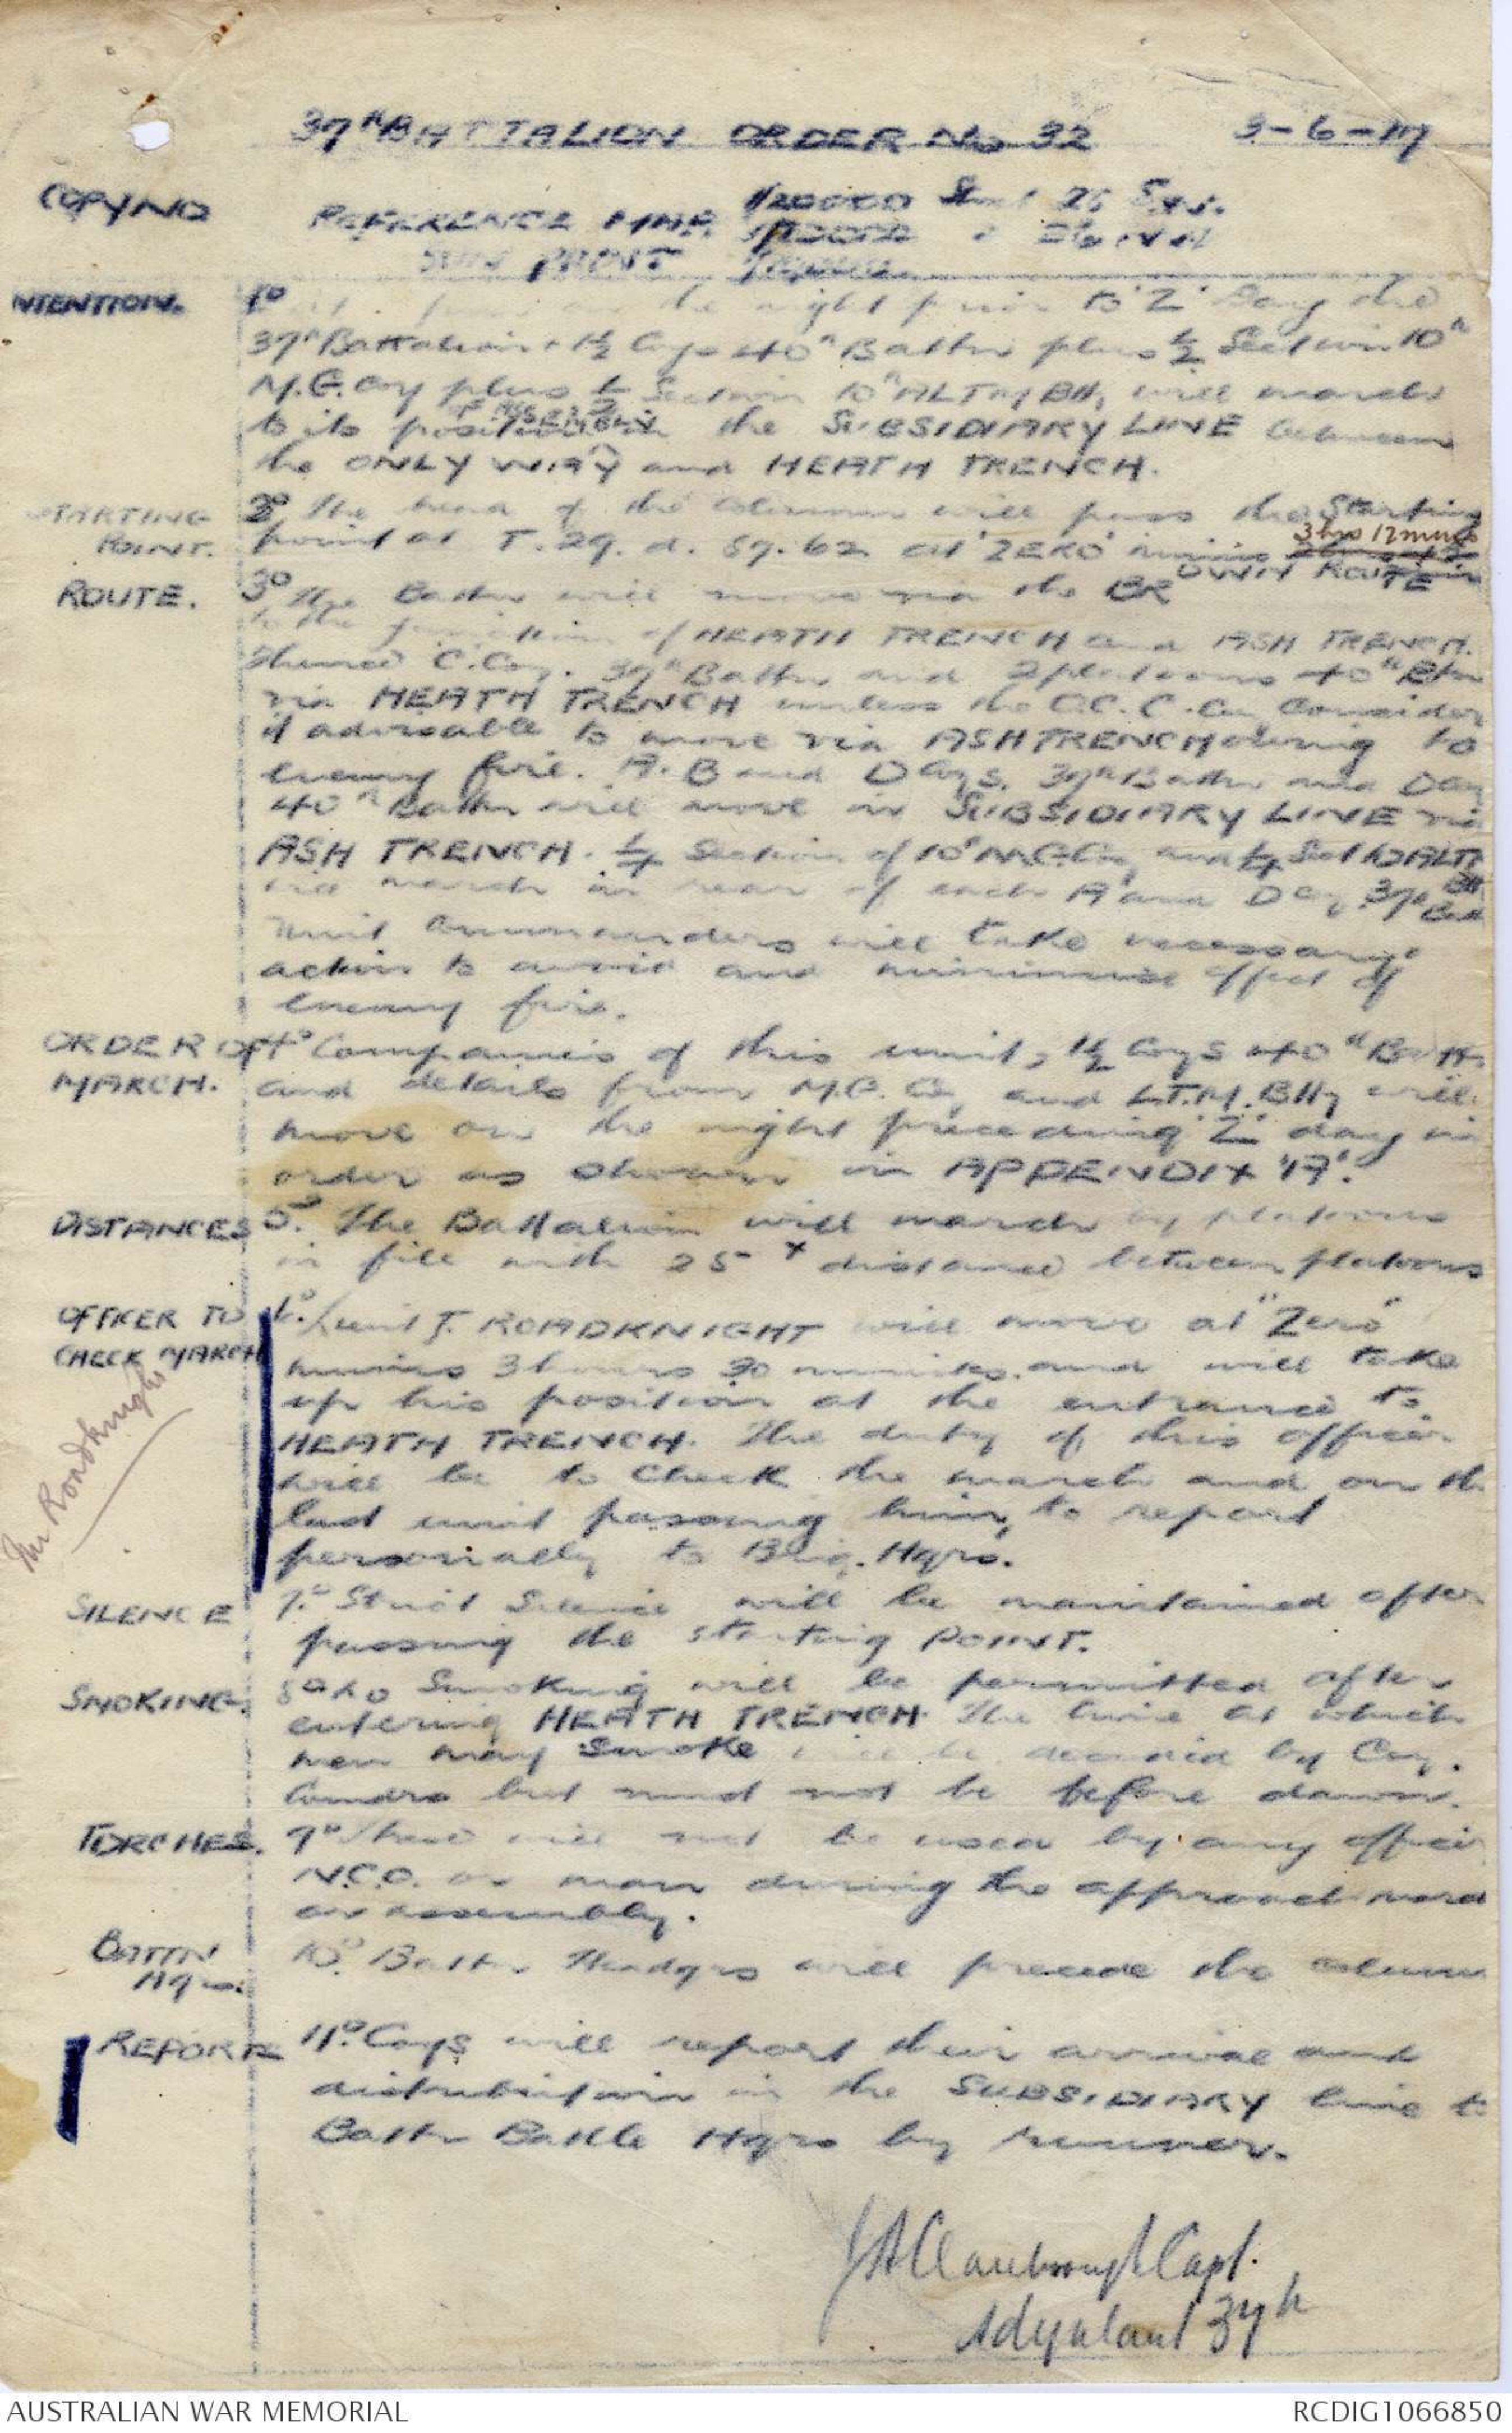 37th BATTALION ORDER No 32 3-6-17
COPY NO
REFERENCE MAP. 1/20000 Sheet 28 S.W.
PRINT
NTENTION. 1o the night prior to 'Z' Day the
37th Battalion + 1½ Coys 40th Battn plus ½ Section 10th
M.G. Coy plus ½ Section 10th A.L.T.M. Bty, will march
of ASSEMBLY
to its position in the SUBSIDIARY LINE between
the ONLY WAY and HEATH TRENCH.
STARTING POINT. 2o The head of the column will pass the Starting
point at T.29.d.59.62 at 'ZERO' minus 3 hrs 12 mins
ROUTE. 3o The Battn will move via the BROWN ROUTE
to the junction of HEATH TRENCH and ASH TRENCH.
Thence C. Coy. 37th Battn and 2 platoons 40th Btn
via HEATH TRENCH unless the O.C. C. Coy Consider
it advisable to move via ASH TRENCH owing to
enemy fire. A. B and D Coys. 37th Battn and D Coy
40th Battn will move in SUBSIDIARY LINE via
ASH TRENCH. ¼ Section of 10th M.G. Coy and ¼ Sect 10 ALTM
Bty
will march in rear of each A and D Coy 37th Batt
Unit Commanders will take necessary
action to avoid and minimise effect of
enemy fire.
ORDER OF MARCH. 4o Companies of this unit, 1½ Coys 40th Battn
and details from M.G. Coy and L.T.M. Bty will
move on the night preceding 'Z' day in
order as shown in APPENDIX 'A'.
DISTANCES 5o. The Battalion will march by platoons
in file with 25 x distance between platoons
OFFICER TO CHECK MARCH 6o. Lieut J. ROADKNIGHT will move at "Zero"
minus 3 hours 30 minutes. and will take
up his position at the entrance to
HEATH TRENCH. The duty of this officer
will be to Check the march and on the
last unit passing him, to report
personally to Brig. Hqrs.
Mr Roadknight
SILENCE 7o Strict Silence will be maintained after
passing the starting POINT.
SMOKING. 8o No Smoking will be permitted after
entering HEATH TRENCH. The time at which
men may Smoke will be decided by Coy.
Comdrs but must not be before dawn.
TORCHES. 9o These will not be used by any officer
N.C.O. or man during the approach march
or assembly.
BATTN Hqrs. 10o. Battn Headqrs will precede the column
REPORTS 11o. Coys will report their arrival and
distribution in the SUBSIDIARY line to
Battn Battle Hqrs by runner.
Capt.
Adjutant 37th
AUSTRALIAN WAR MEMORIAL RCDIG1066850